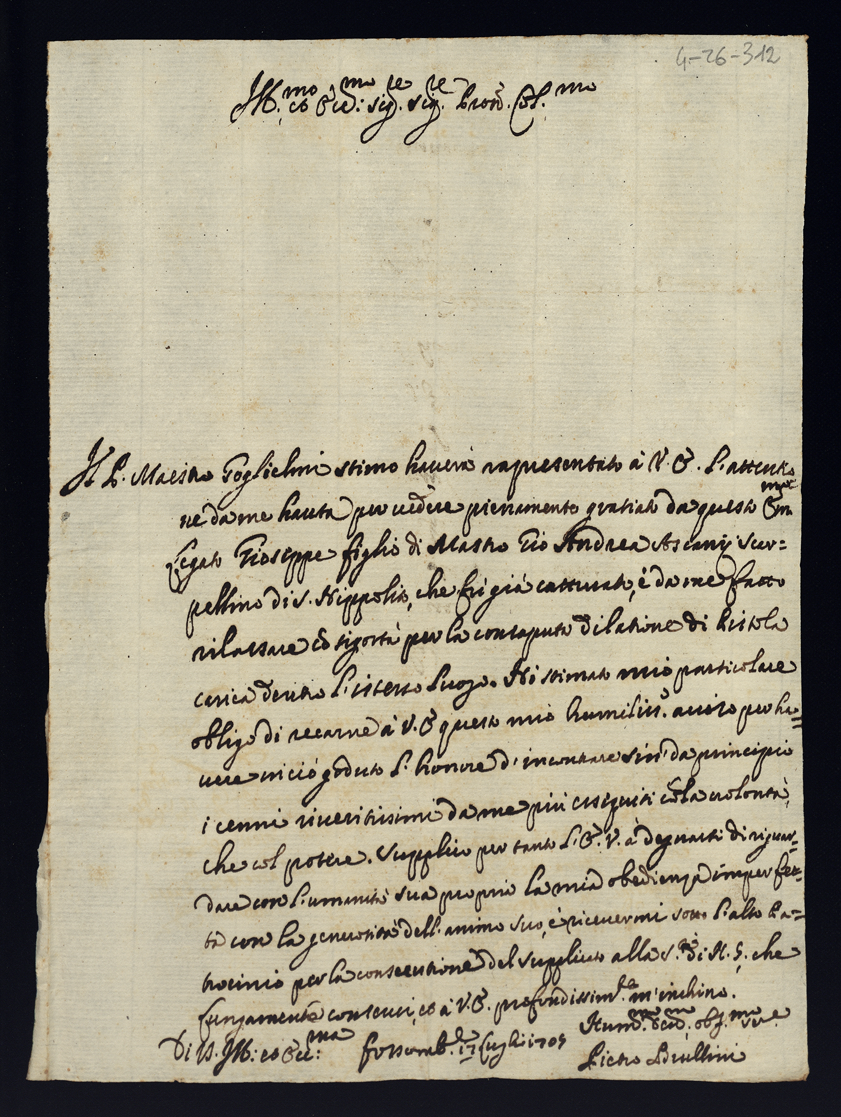 4-26-312
Ill.mo et Ecc.mo Sig.re Sig.re Pron. Col.mo
Il P. Maestro Goglielmi stimo haverà rapresentato à V. E. l'attentio
ne da me hauta per vedere pienamente gratiato da questo Em.mo
Legato Gioseppe figlio di Mastro Gio Andrea Ascanij Scar=
pellino di S. Hippolito, che fù già catturato, è da me fatto
rilassare con sigortà per la consaputa dilatione di Pistola
carica dentro l'istesso luogo. Hò stimato mio particolare
obligo di recarne à V. E. questo mio humiliss.o aviso per ha=
vere in ciò goduto l'honore d'incontrare sin' da principio
i cenni riveritissimi da me più esseguiti con la volontà,
che col potere. Supplico per tanto l'E. V. à degnarsi di riguar=
dare con l'umanità sua propria la mia obedienza imperfet=
ta con la generosità dell'animo suo, è ricevermi sotto l'alto Pa=
trocinio per la consecutione del supplicato alla S.tà di N. S. che
lungamente conservi, et à V. E. profondissim.te m'inchino.
Di V. Ill.: et Ecc.: ma Fossomb.e 17 Luglio 1705
Hum.mo Dev.mo Obl.mo Ser.e
Pietro Brullini